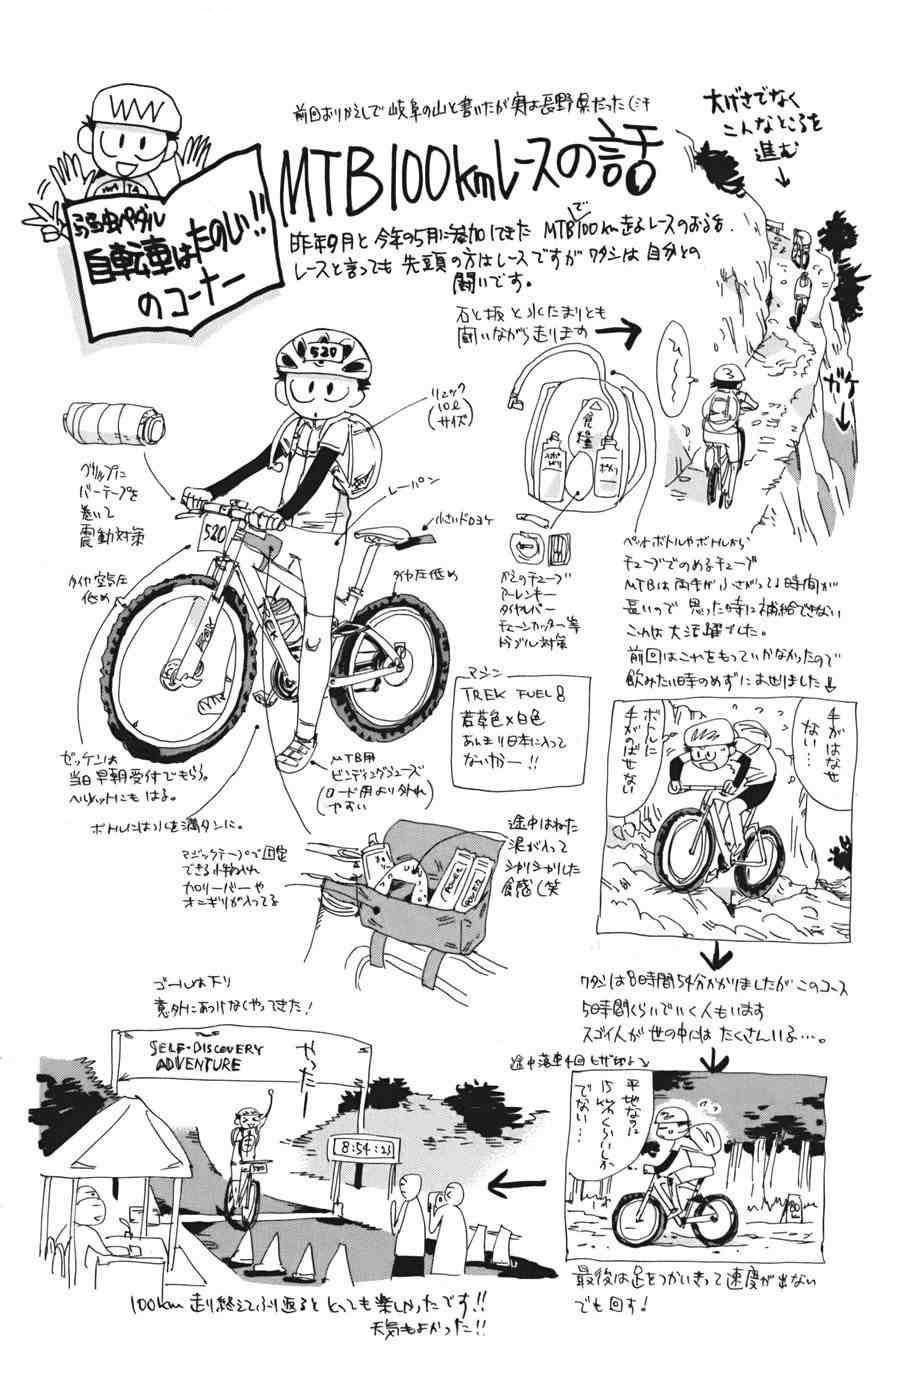 前回おりかえしで岐阜の山と書いたが実は長野県だった(汗
弱虫ペダル
自転車はたのしい!!
のコーナー
MTB100kmレースの話
昨年9月と今年の5月に参加してきた MTBで100km走るレースのおはなし.
レースと言っても 先頭の方はレースですがワタシは自分との
闘いです。
大げさでなく
こんなところを
進む
石と坂と水たまりとも
闘いながら走ります
ひー
ガケ
520
リュック
(10ℓ
サイズ)
グリップに
バーテープを
巻いて
震動対策
レーパン
小さいドロヨケ
520
タイヤ空気圧
低め
タイヤ圧低め
TREK
かえのチューブ
アーレンキー
タイヤレバー
チェーンカッター等
トラブル対策
ペットボトルやボトルから
チューブでのめるチューブ
MTBは両手が小さがってる時間が
長いので 思った時に補給できない
これは大活躍でした。
前回はこれをもっていかなかったので
飲みたい時のめずにあせりました
マシン
TREK FUEL 8
若草色×白色
あんまり日本に入って
ないかも―!!
ゼッケンは
当日早朝受付でもらう。
ヘルメットにもはる。
MTB用
ビンディングシューズ
(ロード用より外れ
やすい)
ボトルには水を満タンに。
マジックテープで固定
できる小物入れ
カロリーバーや
オニギリが入ってる
途中はねた
泥が入って
シャリシャリした
食感(笑
手がはなせ
ない…
ボトルに
手がのばせない
ワタシは8時間54分かかりましたがこのコース
5時間くらいでいく人もいます
スゴイ人が世の中にはたくさんいる…。
ゴールは下り
意外にあっけなくやってきた!
SELF-DISCOVERY
ADVENTURE
やったー
8:54:23
520
途中落車4回 ヒザ切れる
平地なのに
15km/hくらいしか
でない…
最後は足をつかいきって速度が出ない
でも回す!
100km走り終えてふり返るととっても楽しかったです!!
天気もよかった!!